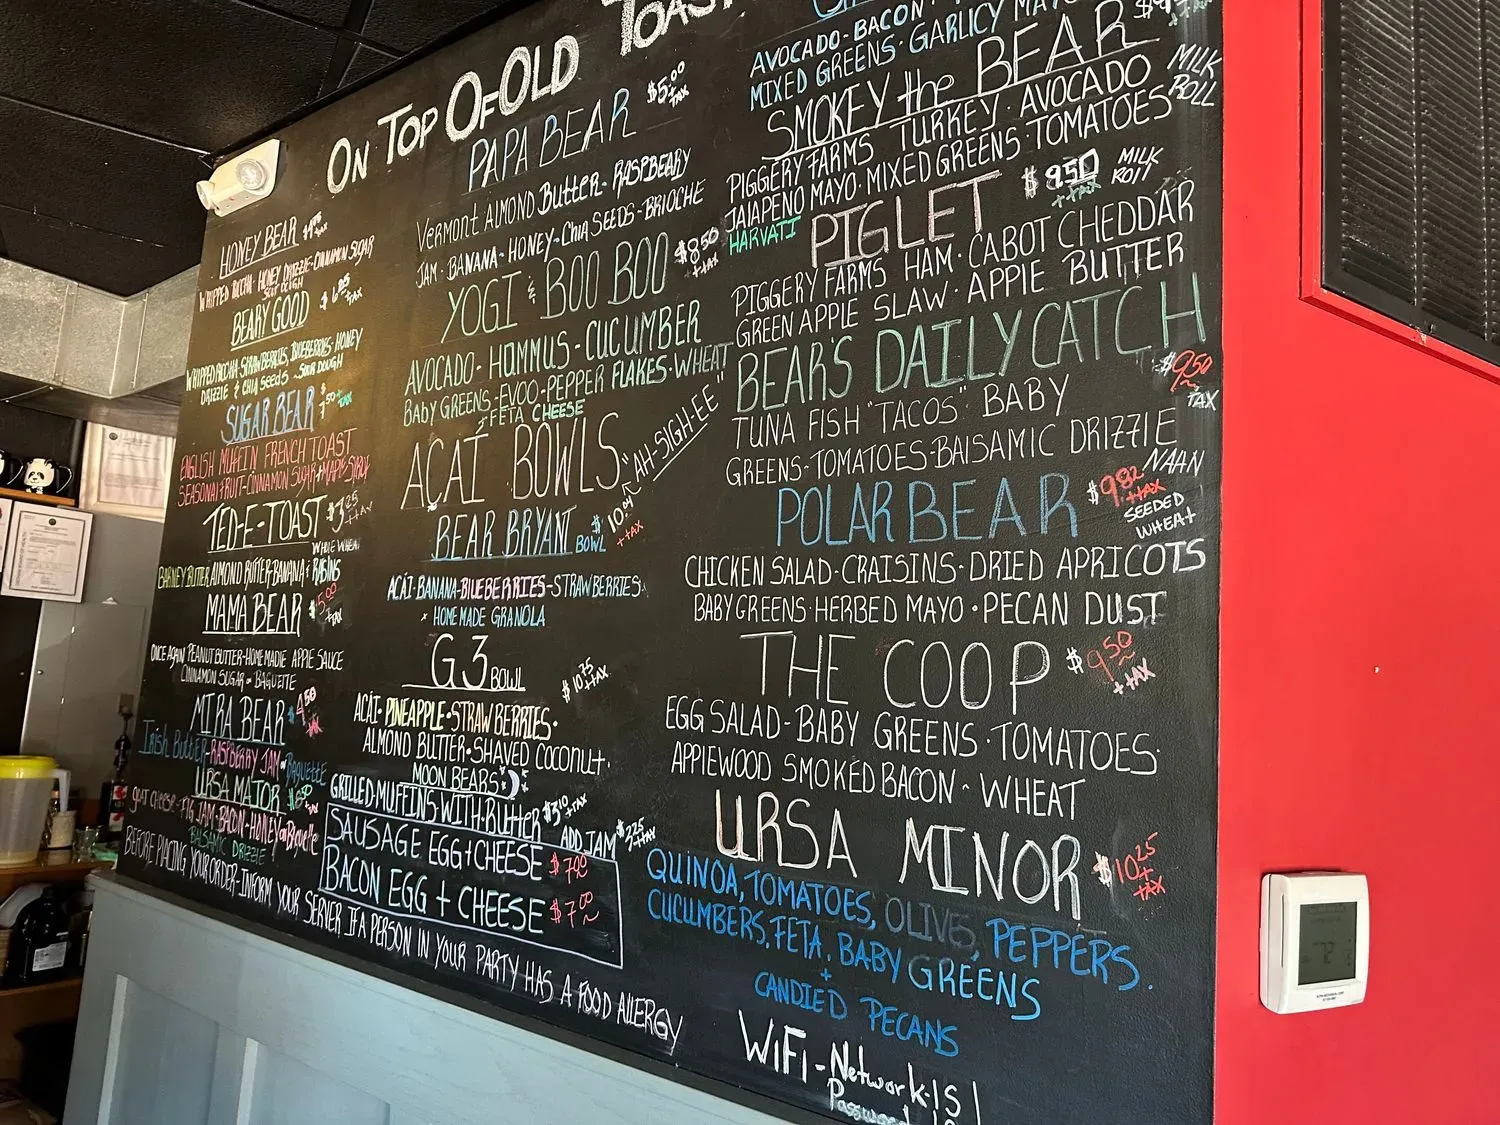 ON TOP OF OLD TOAST
HONEY BEAR
+TAX
HONEY DRIZZLE-CINNAMON SUGAR
SOUR DOUGH
BEARY GOOD
+TAX
STRAWBERRIES, BLUEBERRIES-HONEY
DRIZZLE & CHIA SEEDS - SOUR DOUGH
SUGAR BEAR $7.50 +TAX
ENGLISH MUFFIN FRENCH TOAST
SEASONAL FRUIT-CINNAMON SUGAR+MAPLE SYRUP
TED-E-TOAST $3.25 +TAX
WHOLE WHEAT
BARNEY BUTTER ALMOND BUTTER-BANANA & RAISINS
MAMA BEAR $5.00 +TAX
ONCE AGAIN PEANUT BUTTER-HOMEMADE APPLE SAUCE
CINNAMON SUGAR - BAGUETTE
MIRA BEAR $4.50 +TAX
IRISH BUTTER-RASPBERRY JAM-BAGUETTE
URSA MAJOR
+TAX
GOAT CHEESE-FIG JAM-BACON-HONEY on Baguette
BALSAMIC DRIZZLE
BEFORE PLACING YOUR ORDER-INFORM YOUR SERVER IF A PERSON IN YOUR PARTY HAS A FOOD ALLERGY
PAPA BEAR $5.00 +TAX
VERMONT ALMOND BUTTER-RASPBERRY
JAM-BANANA-HONEY-CHIA SEEDS-BRIOCHE
YOGI & BOO BOO $8.50 +TAX
AVOCADO-HUMMUS-CUCUMBER
BABY GREENS-EVOO-PEPPER FLAKES-WHEAT
+FETA CHEESE
AÇAÍ BOWLS "AH-SIGH-EE"
BEAR BRYANT BOWL
+TAX
AÇAÍ-BANANA-BLUEBERRIES-STRAWBERRIES
+ HOMEMADE GRANOLA
G3 BOWL $10.75 +TAX
AÇAÍ-PINEAPPLE-STRAWBERRIES-
ALMOND BUTTER-SHAVED COCONUT.
MOON BEARS:
GRILLED-MUFFINS WITH BUTTER $3.10 +TAX
ADD JAM $2.25 +TAX
SAUSAGE EGG+CHEESE $7.00
BACON EGG + CHEESE $7.00
AVOCADO-BACON-
MIXED GREENS-GARLICY MAYO
SMOKEY the BEAR
MILK ROLL
PIGGERY FARMS TURKEY-AVOCADO
JALAPEÑO MAYO-MIXED GREENS-TOMATOES
HARVATI
PIGLET $9.50 ++TAX MILK ROLL
PIGGERY FARMS HAM-CABOT CHEDDAR
GREEN APPLE SLAW-APPLE BUTTER
BEAR'S DAILY CATCH $9.50 TAX
TUNA FISH "TACOS" BABY
GREENS-TOMATOES-BALSAMIC DRIZZLE
NAAN
POLAR BEAR $9.82 +TAX
SEEDED WHEAT
CHICKEN SALAD-CRAISINS-DRIED APRICOTS
BABY GREENS-HERBED MAYO-PECAN DUST
THE COOP $9.50 ++TAX
EGG SALAD-BABY GREENS-TOMATOES-
APPLEWOOD SMOKED BACON - WHEAT
URSA MINOR $10.25 + TAX
QUINOA, TOMATOES, OLIVES, PEPPERS.
CUCUMBERS, FETA, BABY GREENS
+
CANDIED PECANS
WIFI-Network-
Password
72